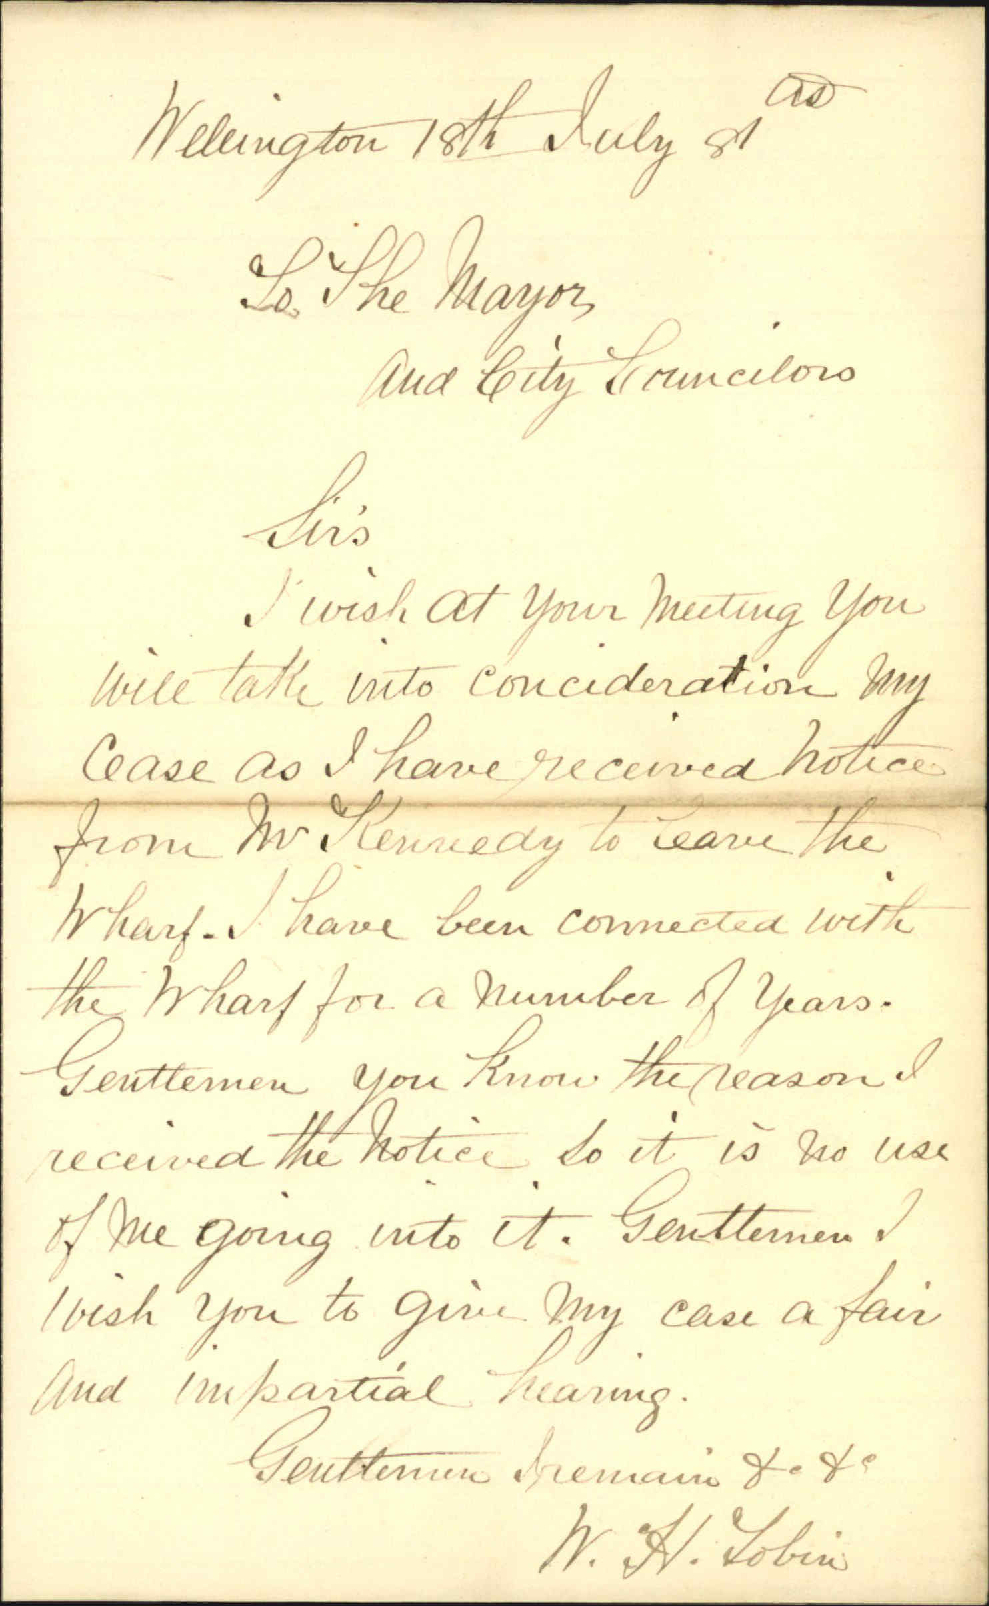 Wellington 18th July 81
To The Mayor,
And City Councilors
Sir's
I wish at your Meeting you
will take into concideration My
Cease as I have received Notice
from Mr Kennedy to Leave the
Wharf. I have been connected with
the Wharf for a Number of Years.
Genttemen you Know the reason I
received the Notice So it is No use
of Me going into it. Genttemen I
Wish you to give My case a fair
And impartial hearing.
Genttemen I remain &c &c
W. H. Tobin